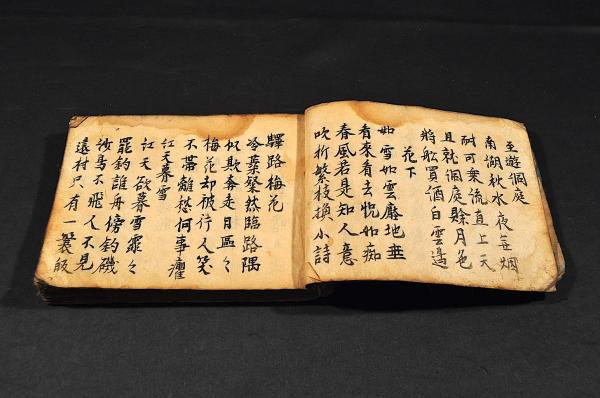 至遊洞庭
南湖秋水夜無烟
耐可乗流直上天
且就洞庭賒月色
將舩買酒白雲邊
花下
如雪如雲廕地垂
看來看去恍如痴
春風若是知人意
吹折繁枝換小詩
驛路梅花
冷葉繁然臨路隅
似欺奔走日區々
梅花却被行人笑
不帶離愁何事癯
江天暮雪
江天欲暮雪霏々
罷釣誰舟傍釣磯
沙鳥不飛人不見
遠村只有一蓑皈